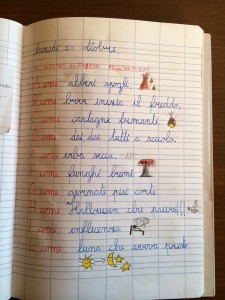 lunedì 2 ottobre
A come alberi spogli
B come brrr inizia il freddo,
C come castagne fumante
D come dai dai tutti a scuola.
E come erba secca. !!!
F come funghi bruni
G come giornate più corte
H come Halloween che paura!!!
I come influenza
L come luna che arriva presto